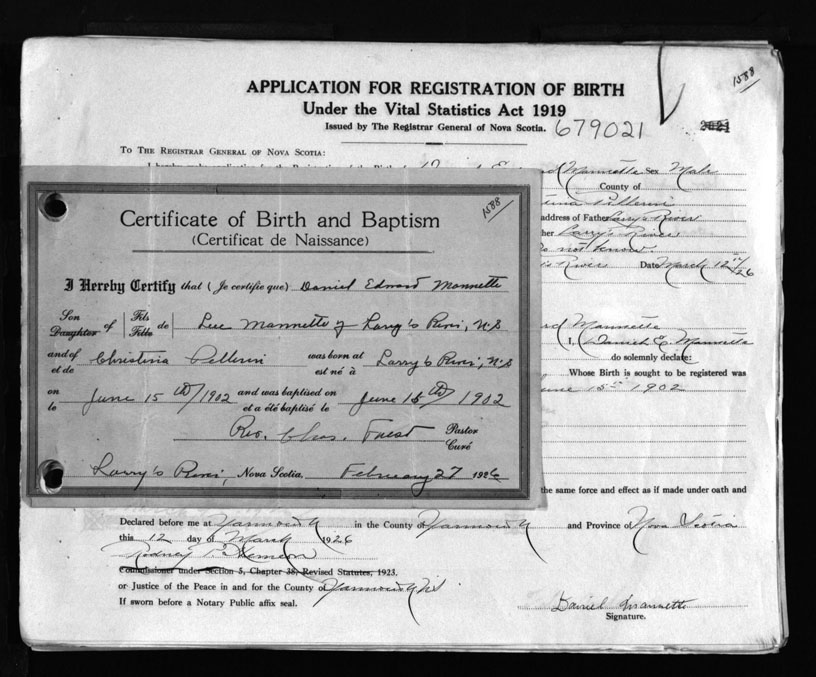 1588
APPLICATION FOR REGISTRATION OF BIRTH
Under the Vital Statistics Act 1919
Issued by The Registrar General of Nova Scotia. 679021 2021
TO THE REGISTRAR GENERAL OF NOVA SCOTIA:
Mannette Sex Male
County of
Pellerin
address of Father Larry's River
Larry's River
Do not know.
River Date March 12th/26
Mannette
I, Daniel E. Mannette
do solemnly declare:
Whose Birth is sought to be registered was
June 15th 1902
the same force and effect as if made under oath and
1588
Certificate of Birth and Baptism
(Certificat de Naissance)
I Hereby Certify that (Je certifie que) Daniel Edward Mannette
Son Fils
Daughter of Fille de Luc Mannette of Larry's River, N.S
and of Christina Pellerin was born at Larry's River, N.S
et de est né à
on June 15th/1902 and was baptised on June 15th/1902
le et a été baptisé le
Rev. Chas. Pastor
Curé
Larry's River, Nova Scotia. February 27 1926
Declared before me at Yarmouth in the County of Yarmouth and Province of Nova Scotia
this 12 day of March 1926
Rodney
Commissioner under Section 5, Chapter 38, Revised Statutes, 1923.
or Justice of the Peace in and for the County of Yarmouth
If sworn before a Notary Public affix seal.
Daniel Mannette
Signature.